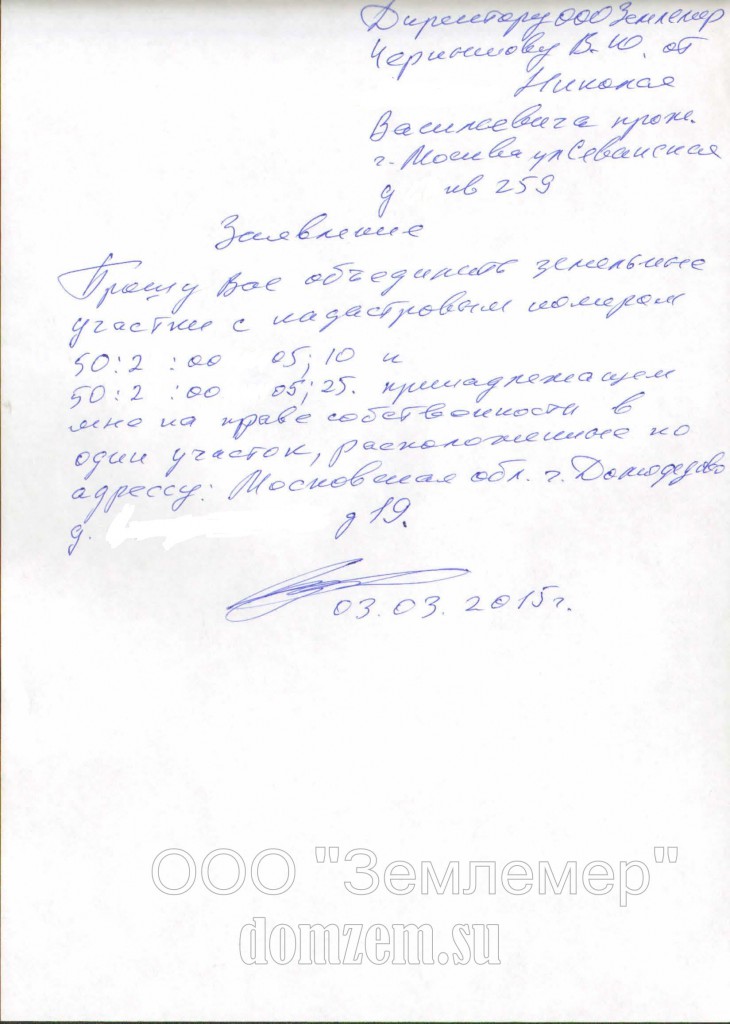 Директору ООО Землемер
Чернышову В.Ю. от
Николая
Васильевича прож.
г. Москва ул Севанская
д кв 259
Заявление
Прошу Вас объединить земельные
участки с кадастровым номером
50:2 :00 05; 10 и
50:2 :00 05; 25. принадлежащем
мне на праве собственности в
один участок, расположенные по
адрессу: Московская обл. г. Домодедово
д. д 19.
03.03.2015г.
ООО "Землемер"
domzem.su